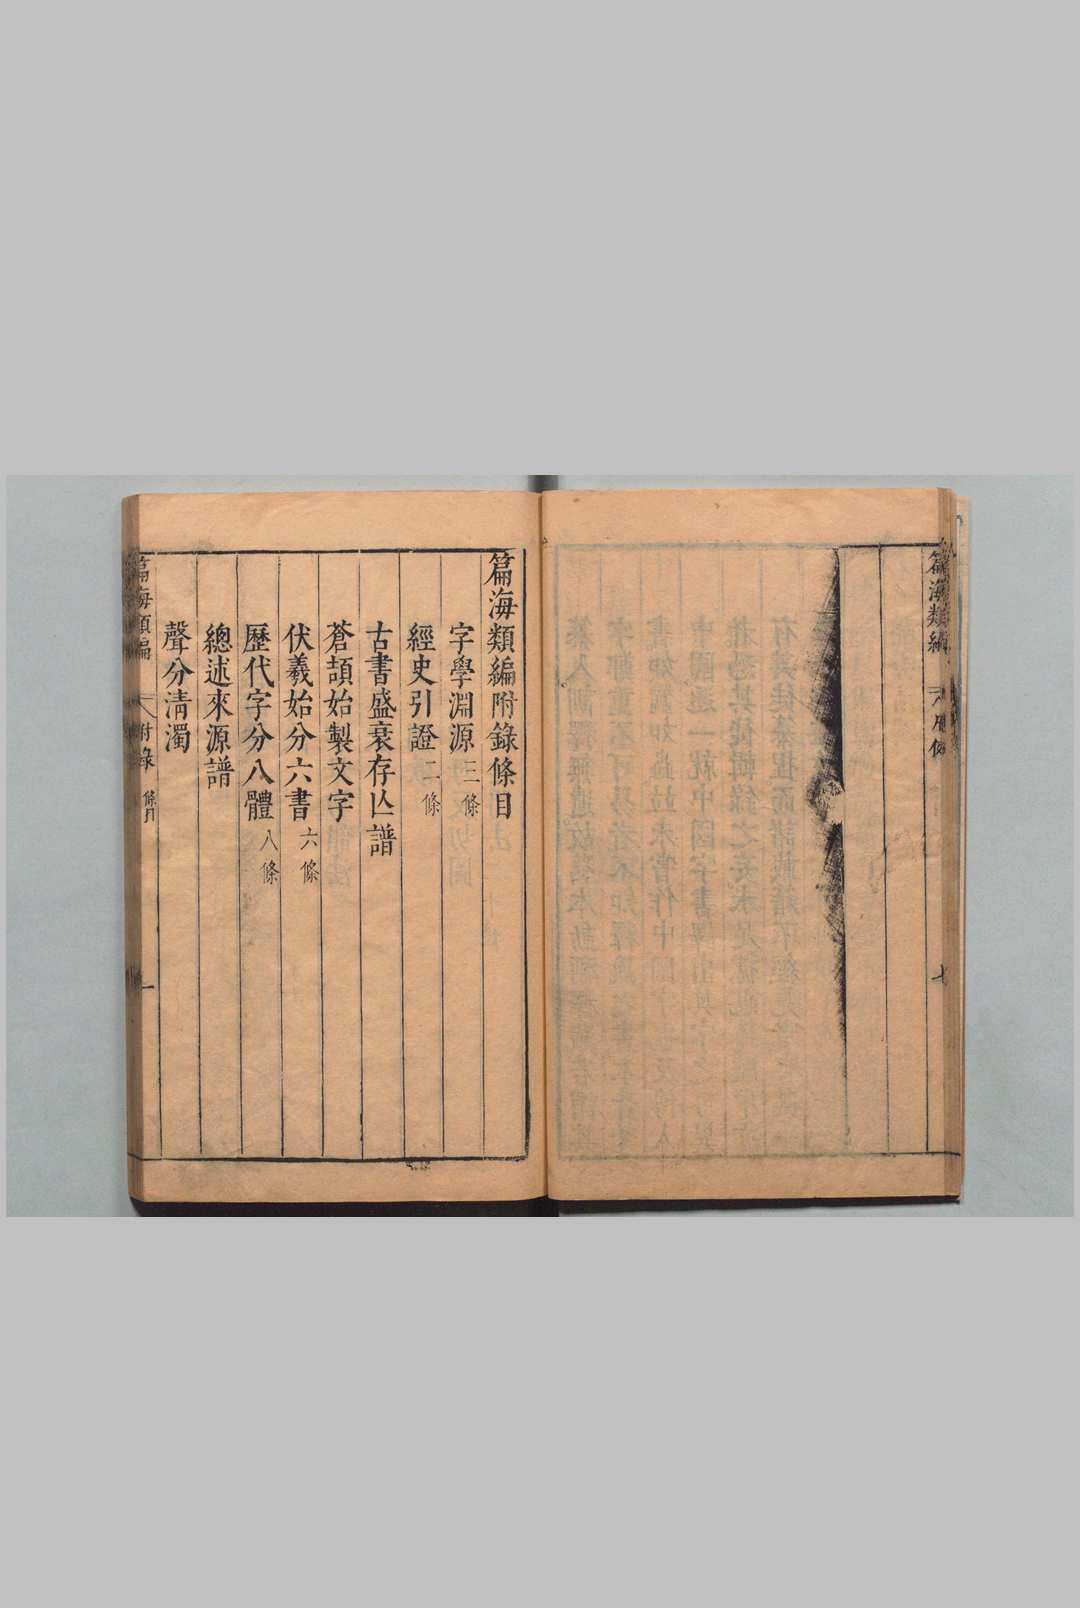 篇海類編
七
篇海類編附錄條目
字學淵源三條
經史引證二條
古書盛衰存亾譜
蒼頡始製文字
伏羲始分六書六條
歷代字分八體八條
總述來源譜
聲分清濁
篇海類編 附錄 條目 一